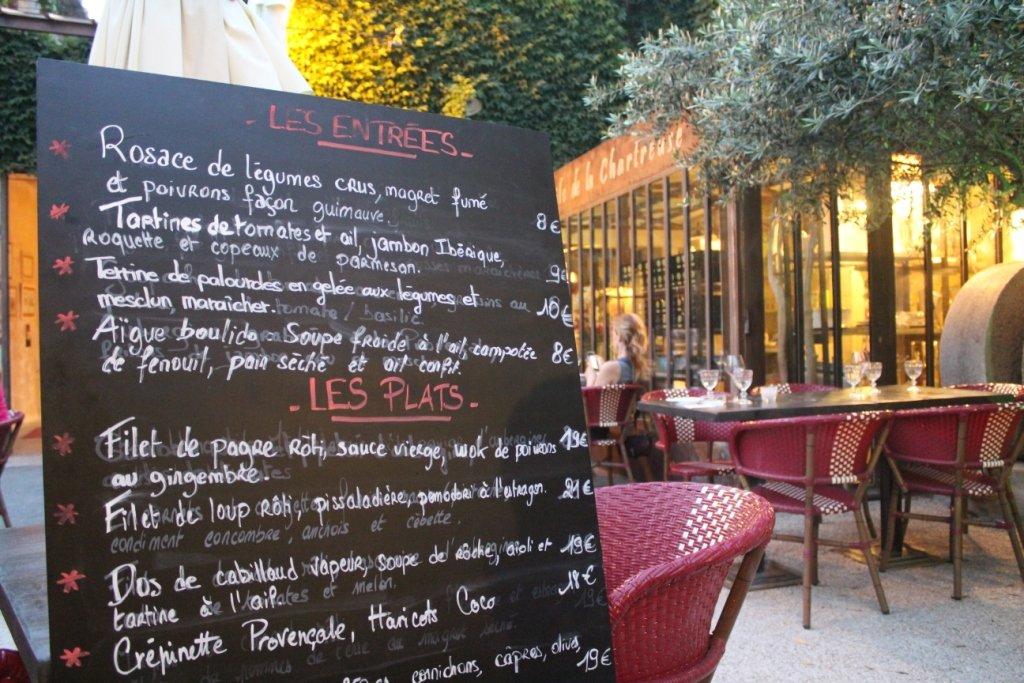 - LES ENTRÉES -
Rosace de légumes crus, magret fumé
et poivrons façon guimauve. 8€
Tartines de tomates et ail, jambon Ibérique,
Roquette et copeaux de parmesan. 9€
Terrine de palourdes en gelée aux légumes et
mesclun, maraîcher. 10€
Aïgue boulido Soupe froide à l'ail, compotée 8€
de fenouil, pain séché et ail confit.
- LES PLATS -
Filet de pagre rôti, sauce vierge, wok de poivrons 19€
au gingembre.
Filet de loup rôti, pissaladière, pomodoro à l'estragon. 21€
condiment concombre, anchois et cébette.
Dos de cabillaud vapeur, soupe de roche, aïoli et 19€
tartine à l'ail
Crépinette Provençale, Haricots Coco 18€
cornichons, câpres, olives, 19€
de la Chartreuse